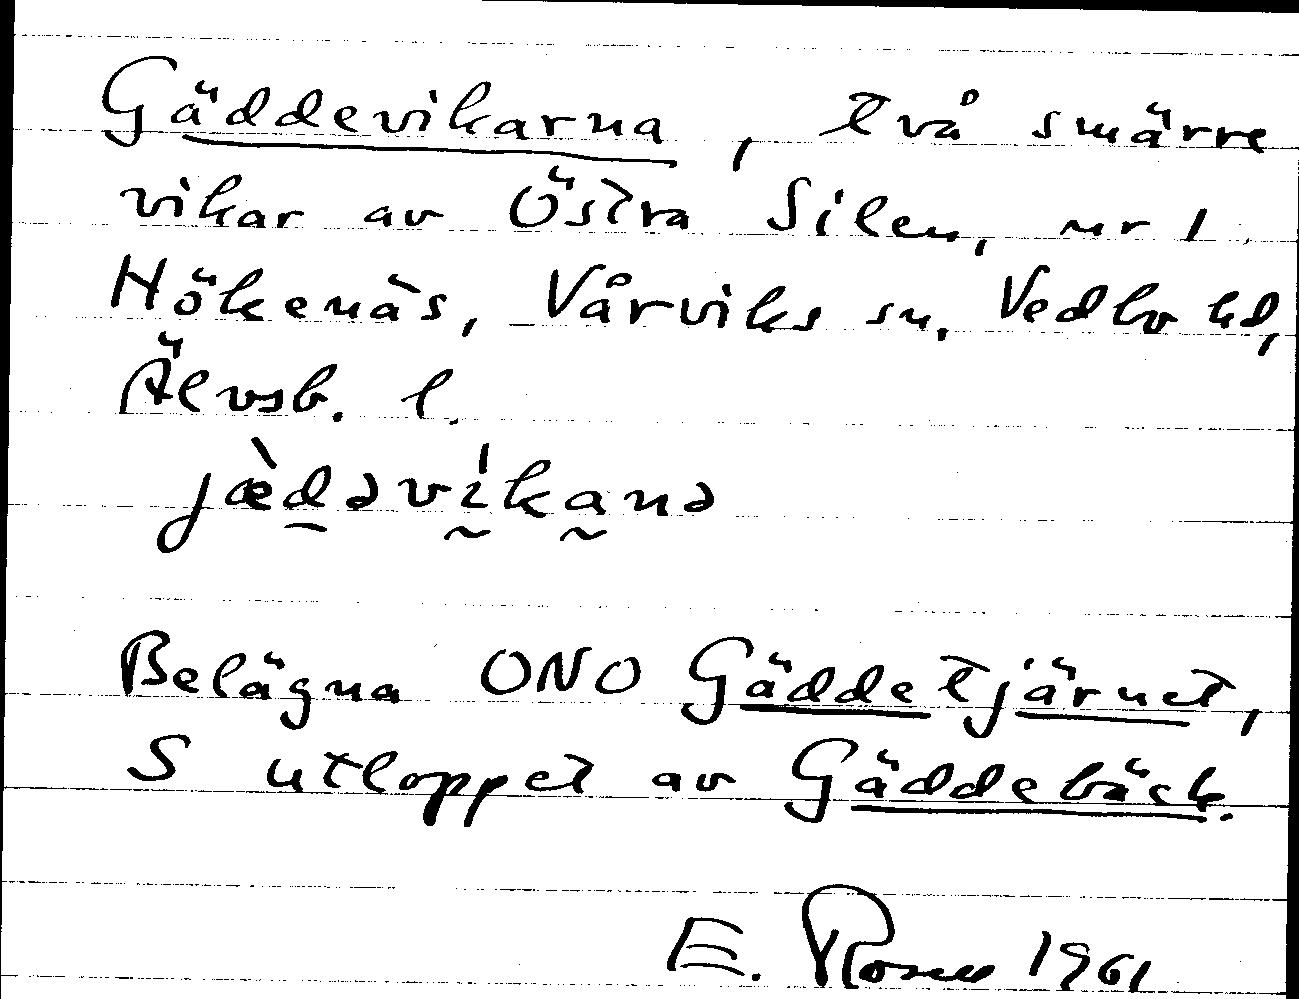 Gäddevikarna, två smärre
vikar av Östra Silen, nr 1
Hökenäs, Vårviks sn, Vedbo hd,
Älvsb. l.
jæ̀dəvíkanə
Belägna ONO Gäddetjärnet,
S utloppet av Gäddebäck.
E. 1961